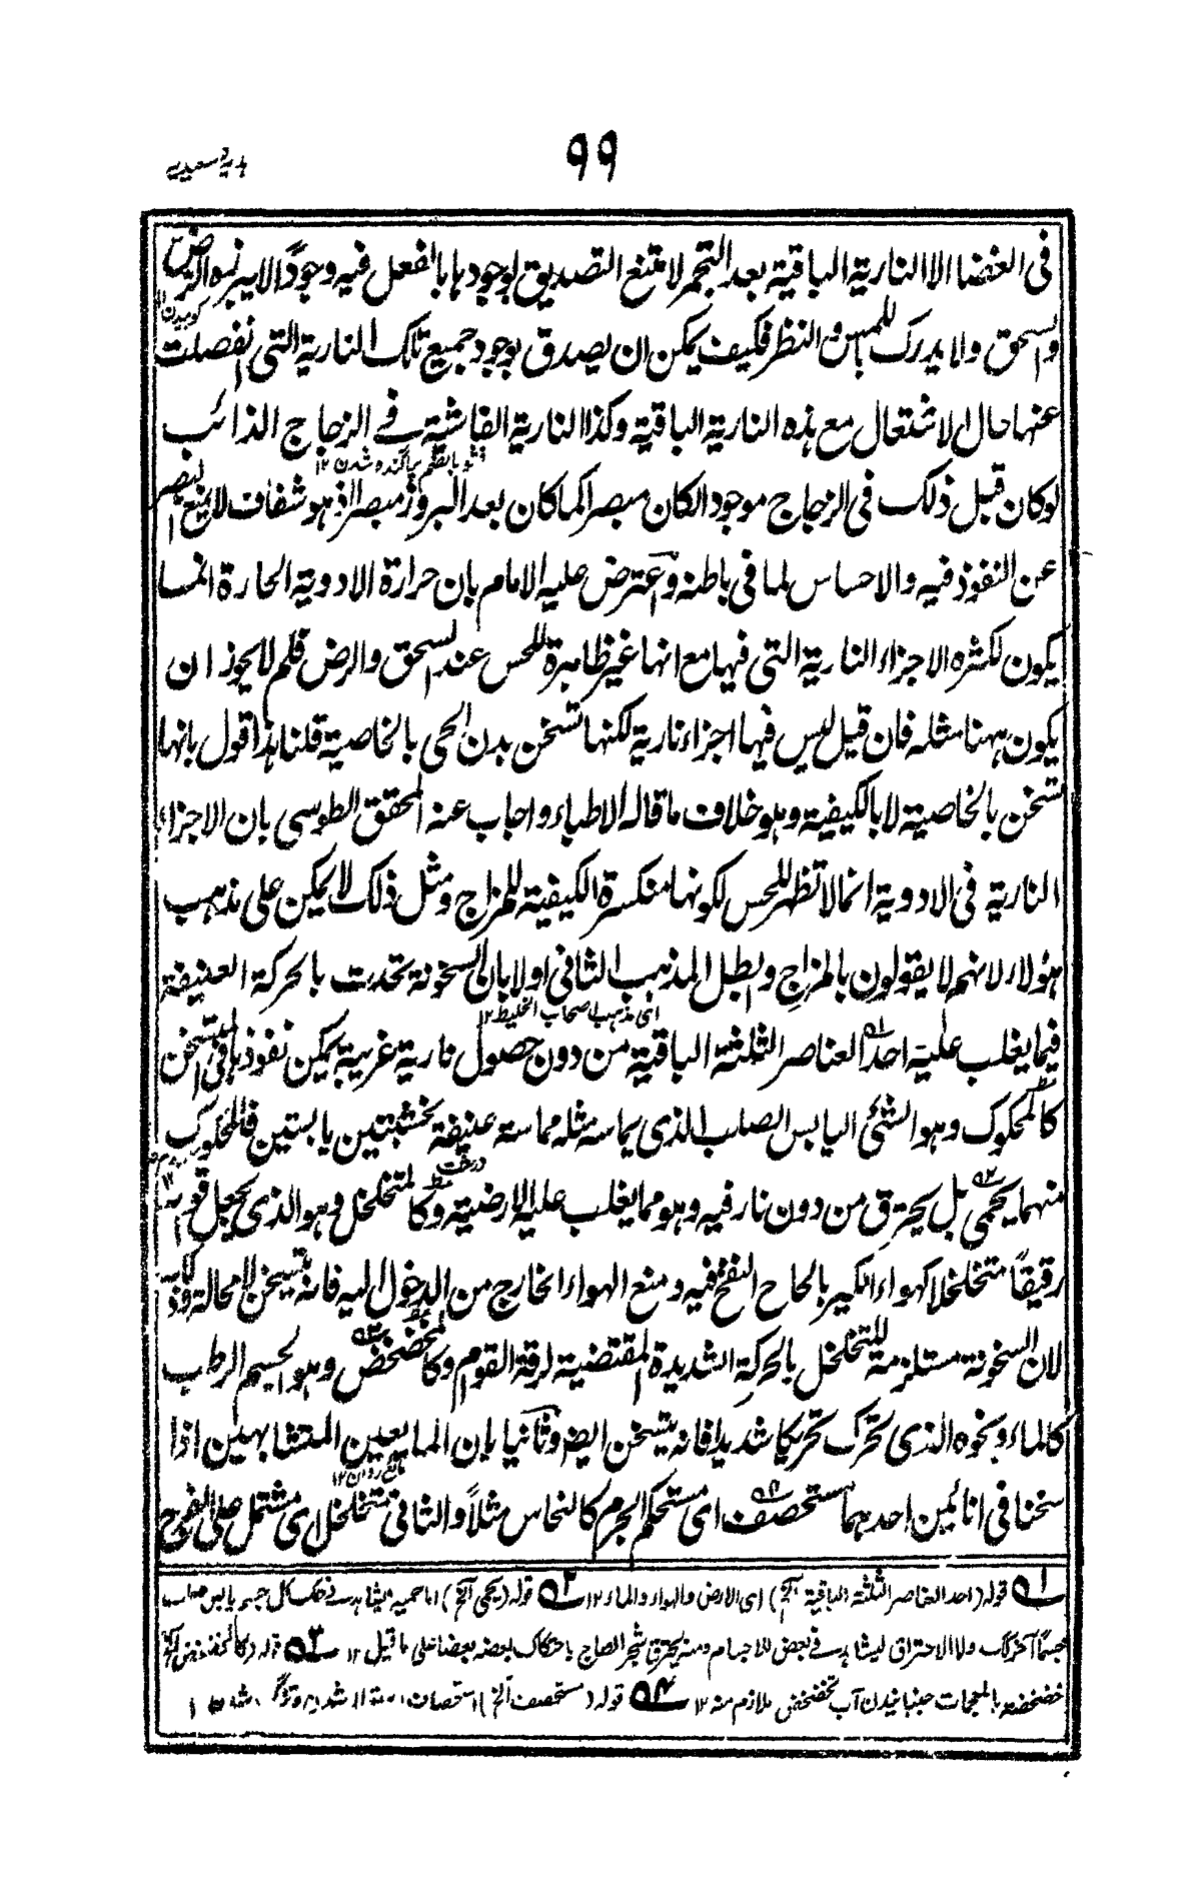 هدية سعيديه
٩٩
فى الغضا الا النارية الباقية بعد التجمر لامتنع التصديق بوجودها بالفعل فيه وجودًا لا يبرزه الرضّ
كوبيدن
والسحق ولا يدرك باللمس والنظر فكيف يمكن ان يصدق بوجود جميع تلك النارية التى انفصلت
عنها حال الاشتعال مع هذه النارية الباقية وكذا النارية الفاشية فے الزجاج الذائب
پراگنده شدن ١٢
لو كان قبل ذلك فى الزجاج موجودا لكان مبصرا كما كان بعد البروز مبصرا اذ هو شفاف لا يمنع البصر
عن النفوذ فيه والاحساس لما فى باطنه واعترض عليه الامام بان حرارة الادوية الحارة انما
يكون لكثرة الاجزاء النارية التى فيها مع انها غير ظاهرة للحس عند السحق والرض فلم لا يجوز ان
يكون ههنا مثله فان قيل ليس فيها اجزاء نارية لكنها تسخن بدن الحى بالخاصية قلنا هذا قول بانها
تسخن بالخاصية لا بالكيفية وهو خلاف ما قاله الاطباء واجاب عنه المحقق الطوسى بان الاجزاء
النارية فى الادوية انما لا تظهر للحس لكونها منكسرة الكيفية للمزاج ومثل ذلك لا يمكن على مذهب
هؤلاء لانهم لا يقولون بالمزاج ويبطل المذهب الثانى اولا بان السخونة تحدث بالحركة العنيفة
اى مذهب اصحاب الخليط ١٢
فيما يغلب عليه احد العناصر الثلثة الباقية من دون حصول نارية غريبة يمكن نفوذها فى المتسخن
كالمحكوك وهو الشئ اليابس الصلب الذى يماسه مثله مماسة عنيفة كخشبتين يابستين فالمحكوك
درخت
منهما يحمى بل يحترق من دون نار فيه وهو مما يغلب عليه الارضية وكالمتخلخل وهو الذى يجعل قوامه
رقيقًا متخلخلا كهواء الكير بالحاح النفخ فيه ومنع الهواء الخارج من الدخول اليه فانه يتسخن لا محالة وذلك
لان السخونة مستلزمة للتخلخل بالحركة الشديدة المقتضية لرقة القوام وكالمخضخض وهو الجسم الرطب
كالماء ونحوه الذى تحرك تحريكا شديدا فانه يتسخن ايض وثانيا بان المايعين المتشابهين اذا
مائع روان ١٢
سخنا فى انائين احدهما مستحصف اى مستحكم الجرم كالنحاس مثلاً والثانى متخلخل اى مشتمل على الفروج
١ قوله (احد العناصر الثلثة الباقية آلخ) اى الارض والهواء والماء ١٢ ٢ قوله (يحمى آلخ) اما حميه فيشاهد فے حك كل جسم يابس صلب
جسمًا آخر كك ولا الاحتراق ليشاهد فے بعض الاجسام ومنه يحترق شجر الصاج باحتكاك بعضه بعضا على ما قيل ١٢ ٣ قوله (كالمخضخض آلخ)
خضخضه بالمعجمات جنبانيدن آب تخضخض ملازم منه ١٢ ٤ قوله (مستحصف آلخ) استحصاف